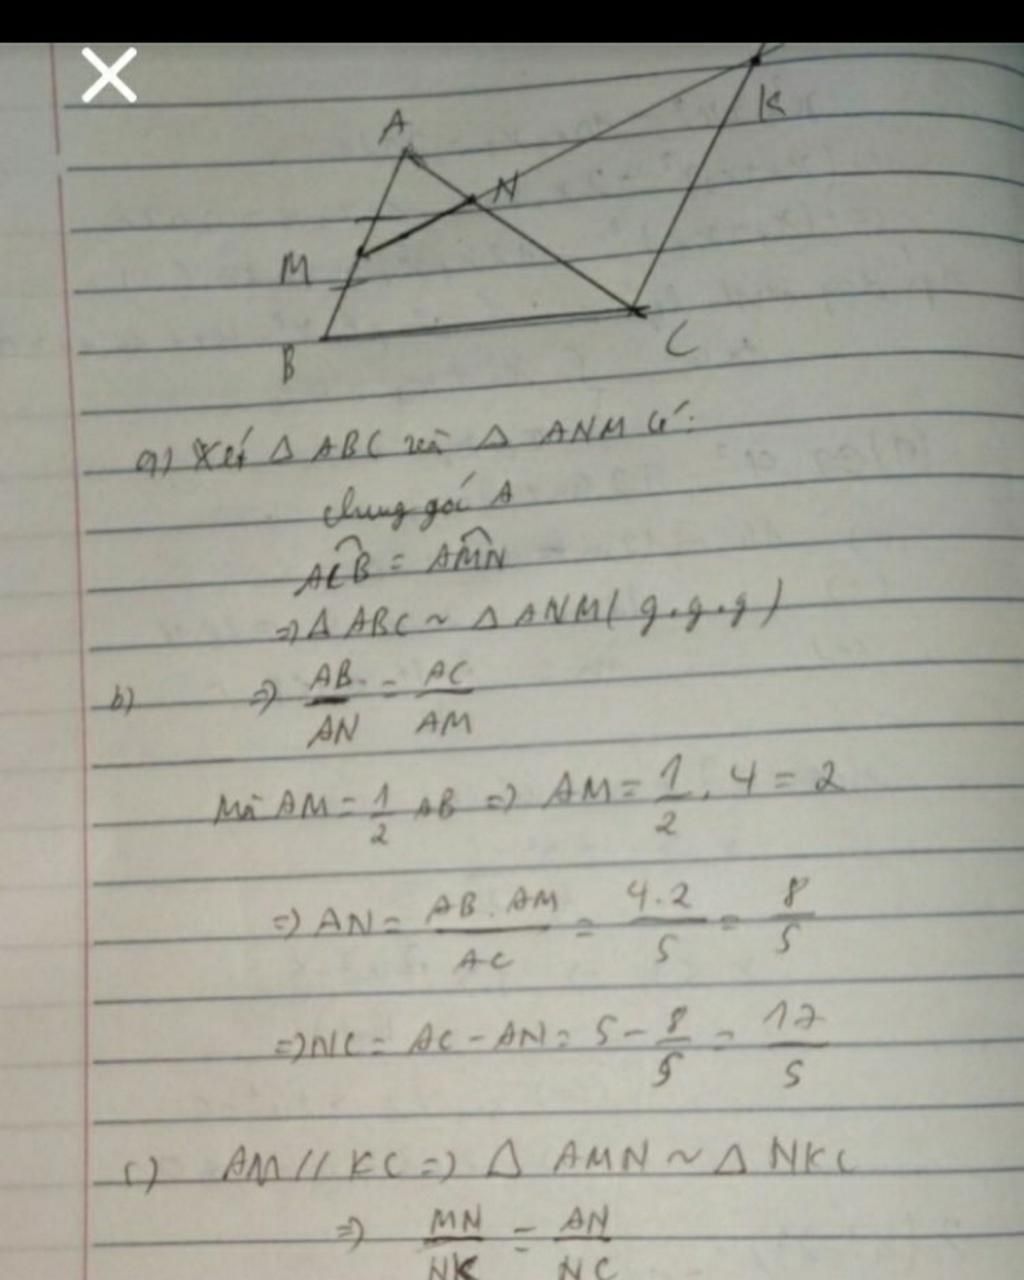 A
K
N
M
B
C
a) Xét Δ ABC và Δ ANM có:
chung góc A
ACB = AMN
=> Δ ABC ~ Δ ANM (g.g.g)
b) => AB/AN = AC/AM
Mà AM = 1/2 AB => AM = 1/2 . 4 = 2
=> AN = AB.AM/AC = 4.2/5 = 8/5
=> NC = AC - AN = 5 - 8/5 = 17/5
c) AM // KC => Δ AMN ~ Δ NKC
=> MN/NK = AN/NC